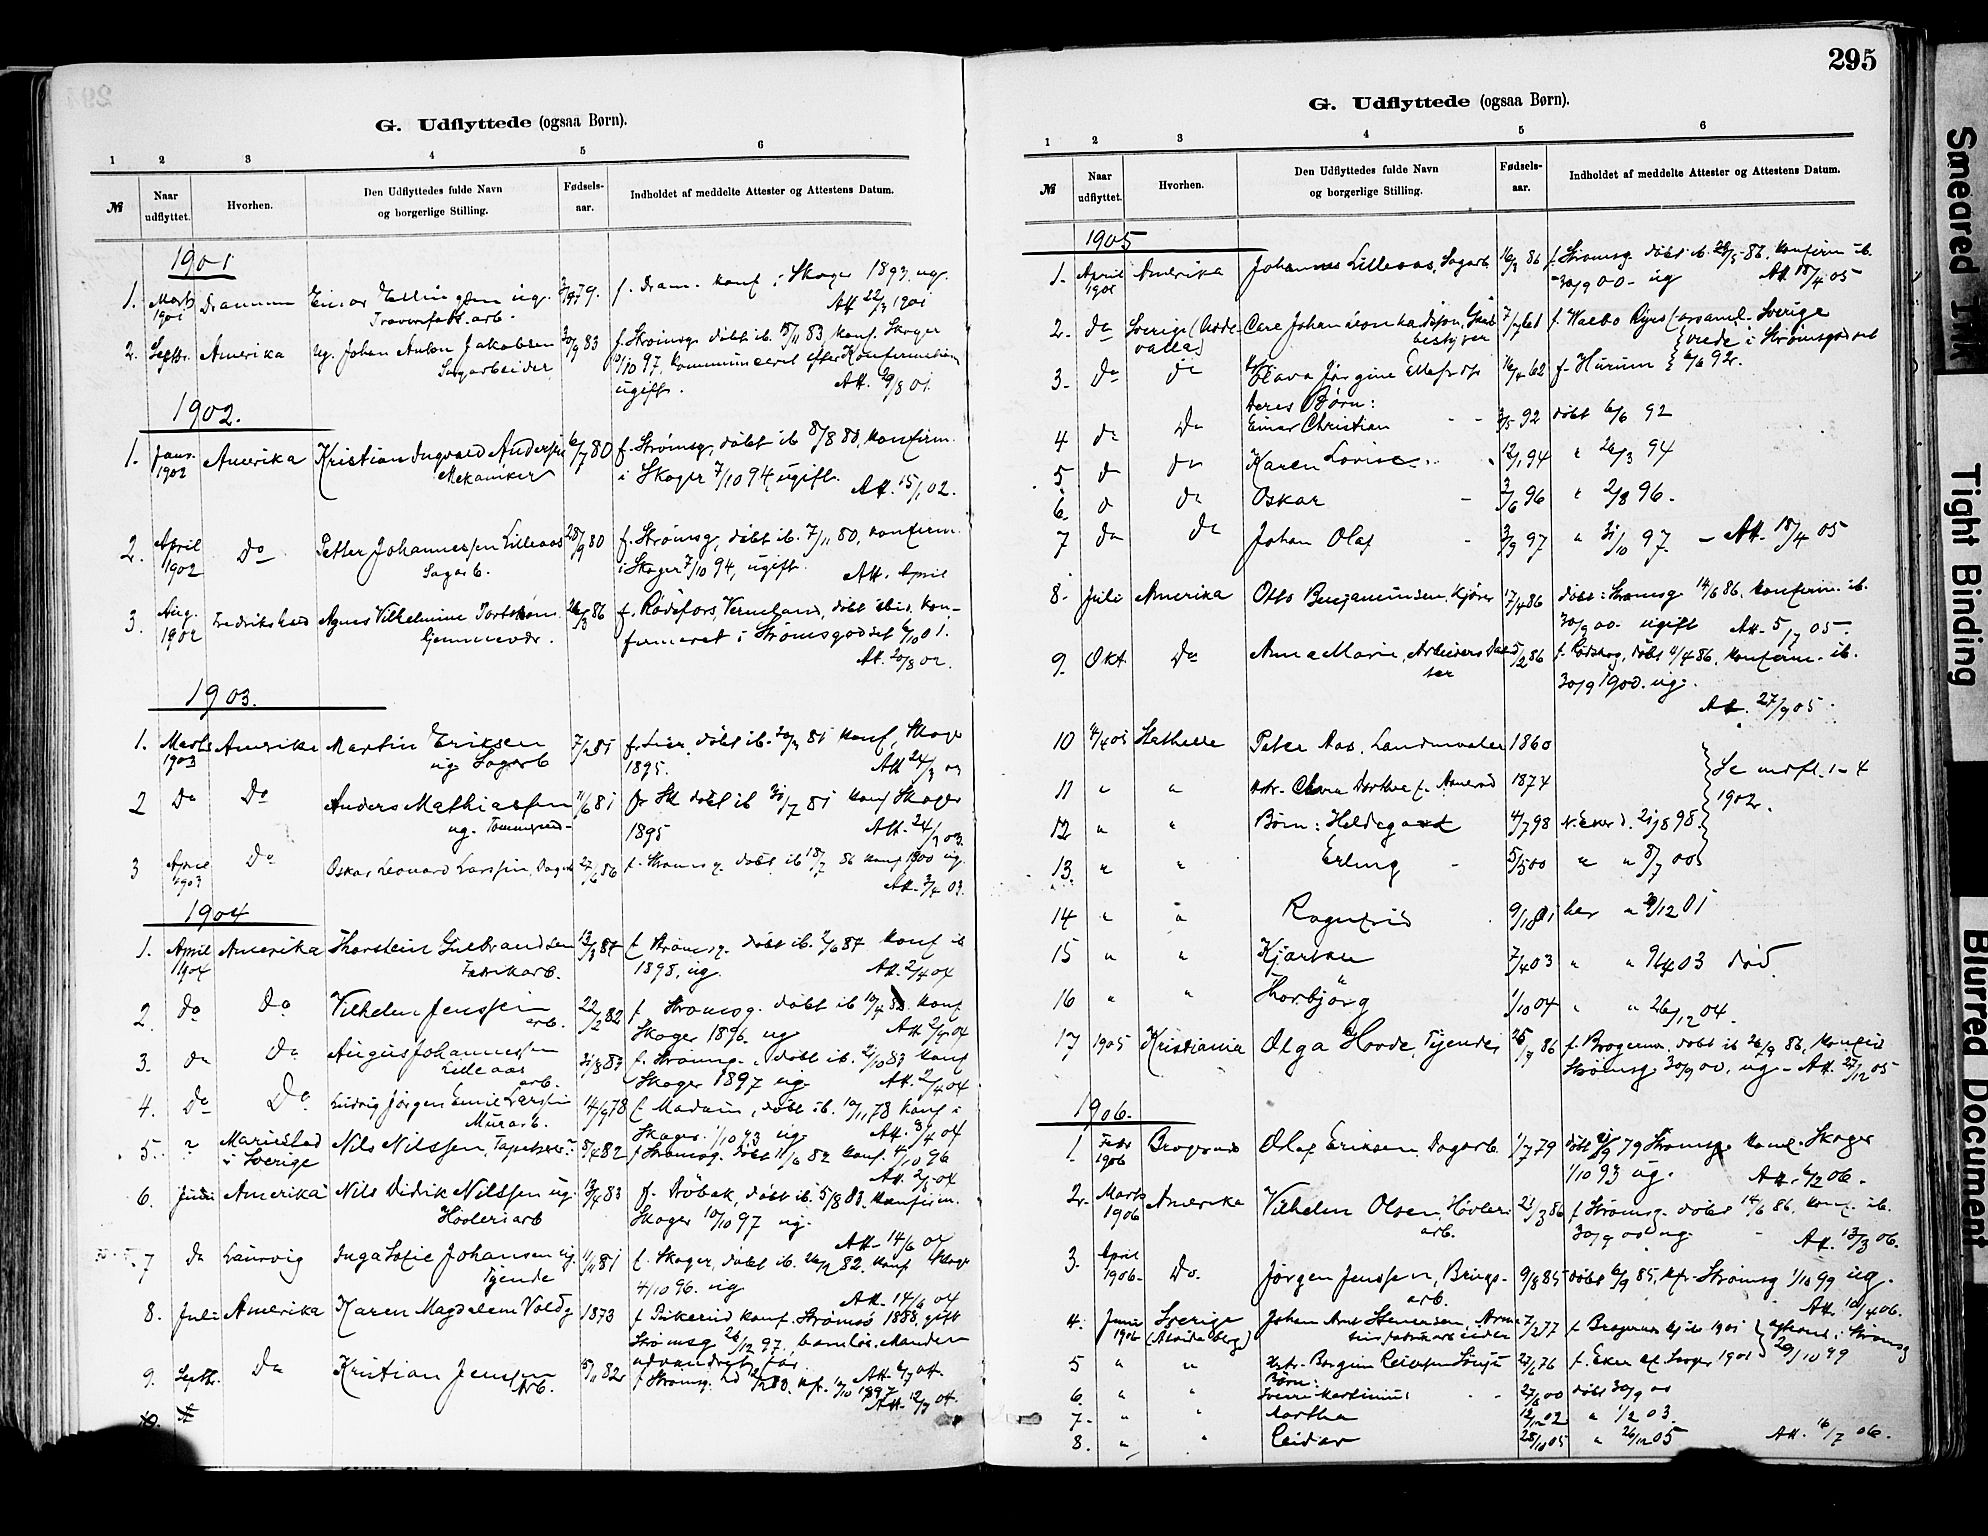 G. Udflyttede (ogsaa Børn).
1 2 3 4 5 6
№ Naar udflyttet. Hvorhen. Den Udflyttedes fulde Navn og borgerlige Stilling. Fødsels-aar. Indholdet af meddelte Attester og Attestens Datum.
1901
1. Marts 1901 Drammen Einar Ellingsen ug. f. Dram. konf. i Skoger 1893. ug.
Att 22/3 1901
2. Septbr. Amerika ug. Johan Anton Jakobsen 30/9 83 f. Strømsg. døbt ib. 18/11 83, konf. Skoger
Sagarbeider 10/10 97, kommuniceret efter Konfirmation
ugift. Att. 29/8 01.
1902.
1. Janr. 1902 Amerika Kristian Ingvald Andersen 6/7 80 f. Strømsg, døbt ib 8/8 80, konfirm.
Mekaniker i Skoger 7/10 94, ugift. Att. 15/1 02.
2. April 1902 Do Petter Johannessen Lilleaas 28/9 80 f. Strømsg, døbt ib. 7/11 80, konfirm.
Sagarb. i Skoger 7/10 94, ugift. Att. April
3. Aug. 1902 Fredrikshald Agnes Vilhelmine 26/3 86 f. Rödsfors, Vermeland, døbt ibid. kon-
Hjemmevær. firmeret i Strømsgodset 6/10 01.
Att. 20/8 02.
1903.
1. Marts 1903 Amerika Martin Eriksen 7/2 81 f. Lier, døbt ib. 20/3 81 konf. Skoger
ug. Sagarb 1895. Att 24/3 03
2 Do Do Anders Mathiassen 11/6 81 døbt ib 31/7 81 konf Skoger
ug. 1895 Att. 24/3 03.
3 April 1903 Do Oskar Leonard Larssen, Sagarb 27/6 86 f. Strømsg. døbt ib 18/7 86 konf 1900 ug.
Att. 3/4 03.
1904
1. April 1904 Amerika Thorstein Gulbrandsen 13/3 87 f. Strømsg. døbt ib. 2/6 87 konf ib
Fabrikarb. 1898, ug. Att. 2/4 04
2. Do Do Vilhelm Jenssen 22/2 82 f. Strømsg. døbt ib 10/4 82 konf
arb. Skoger 1896. ug Att 2/4 04
3. Do Do August Johannessen 31/8 83 f. Strømsg., døbt ib. 21/10 83 konf
Lilleaas arb. Skoger 1897 ug. Att. 2/4 04
4. Do Do Ludvig Jørgen Emil Larssen 14/9 78 f. Modum, døbt ib. 10/11 78 konf i
Murarb. Skoger 1/10 93 ug. Att. 3/4 04
5. Mariestad i Sverige Nils Nilssen, Tapetserer 8/4 82 f. Strømsg. døbt 11/6 82 konf. 4/10 96
6. Juni Amerika Nils Didrik Nilssen ug. 13/4 83 f. Drøbak, døbt ib. 5/8 83, konfirm.
Høvleriarb Skoger 10/10 97 ug.
Att. 14/6 04
7 Do Laurvig Inga Sofie Johansen ug. 1/11 81 f. Skoger, døbt ib. 82. konf Skoger
Tjende 4/10 96. ug
Att. 14/6 04
8. Juli Amerika Karen Magdalene Voldg 1873 konf. Strømsø 1888, gift
Strømsg 26/12 97, barnløs. Manden
udvandret før. Att. 6/7 04.
9. Septbr. Do Kristian Jenssen 5/11 82 f. Strømsg. konf. 10/10 1897
arb. Att. 12/9 04.
10.
295
G. Udflyttede (ogsaa Børn).
1 2 3 4 5 6
№ Naar udflyttet. Hvorhen. Den Udflyttedes fulde Navn og borgerlige Stilling. Fødsels-aar. Indholdet af meddelte Attester og Attestens Datum.
1905
1. April Amerika Johannes Lilleaas, Sagarb. 16/3 86 f. Strømsg. døbt ib. 86, konfirm ib.
30/9 00. ug Att. 18/4 05
2. Do Sverige (Udde-valla) Carl Johan 7/7 61 Sverige
bestyrer i Strømsgodset
3. Do Do Olava Jørgine Ellefsdtr 16/4 62 f. Hurum 6/6 92.
deres Børn:
4 Do Do Einar Christian 3/5 92 døbt 6/6 92
5 Do Do Karen Lovise 12/1 94 " 26/3 94
6. Do Do Oskar 3/6 96 " 2/8 96.
7 Do Do Johan Olaf 3/9 97 " 31/10 97. Att. 18/4 05
8. Juli Amerika Otto Benjaminsen, Kjører 17/4 86 døbt i Strømsg 14/6 86, konfirm. ib.
30/9 00. ugift Att. 5/7 05.
9. Okt. Do Anna Marie, Arbeiders Dat- 5/2 86 døbt 11/4 86, konfirm. ib.
ter 30/9 1900. ug.
Att. 27/9 05.
10 4/4 05 Stathelle Peter Aas, Landmaaler 1860
11 " " Hstr. Clara Dorthea 1874 Se indfl. 1-4
1902.
12 " " Børn: Hildegard 4/7 98 N. Eker d. 21/8 98.
13. " " Erling 5/5 00 " " 8/7 00
14 " " Ragnfrid 9/10 01 her " 01
15 " " Kjartan 7/4 03 " " 03 død.
16 " " Thorbjørg 1/10 04 " " 26/12 04.
17 1905 Kristiania Olga Hovde, Tjende 25/7 86 f. Bragernes, døbt ib 26/9 86, konf
Strømsg 30/9 00, ug. Att. 27/12 05
1906.
1. Febr 1906 Bragernes Olaf Eriksen, Dagarb. 1/7 79 døbt 21/9 79 Strømsg. konf. Skoger
1/10 93 ug. Att. 6/2 06.
2. Marts 1906 Amerika Vilhelm Olsen, Høvleri 21/3 86 f Strømsg. døbt 14/6 86, konf. ib.
arb. 30/9 00 ug. Att. 13/3 06.
3. April 1906 Do. Jørgen Jenssen, Brugs- 9/8 85 døbt 6/9 85, kfr. Strømsg 1/10 99 ug.
arb. Att. 10/4 06.
4. Juni 1906 Sverige Johan 7/2 77 f. Bragernes i Strømsg
fabrikarbeider 29/10 99
5 " " Hstr. 27/6 76 f. Eker
Børn:
6. " " 27/6 00 døbt 30/9 00
7. " " Martha 12/12 02 " 1/2 03.
8. " " Reidar 28/10 05 " 26/12 05 Att. 16/7 06.
Smeared Ink
Tight Binding
Blurred Document